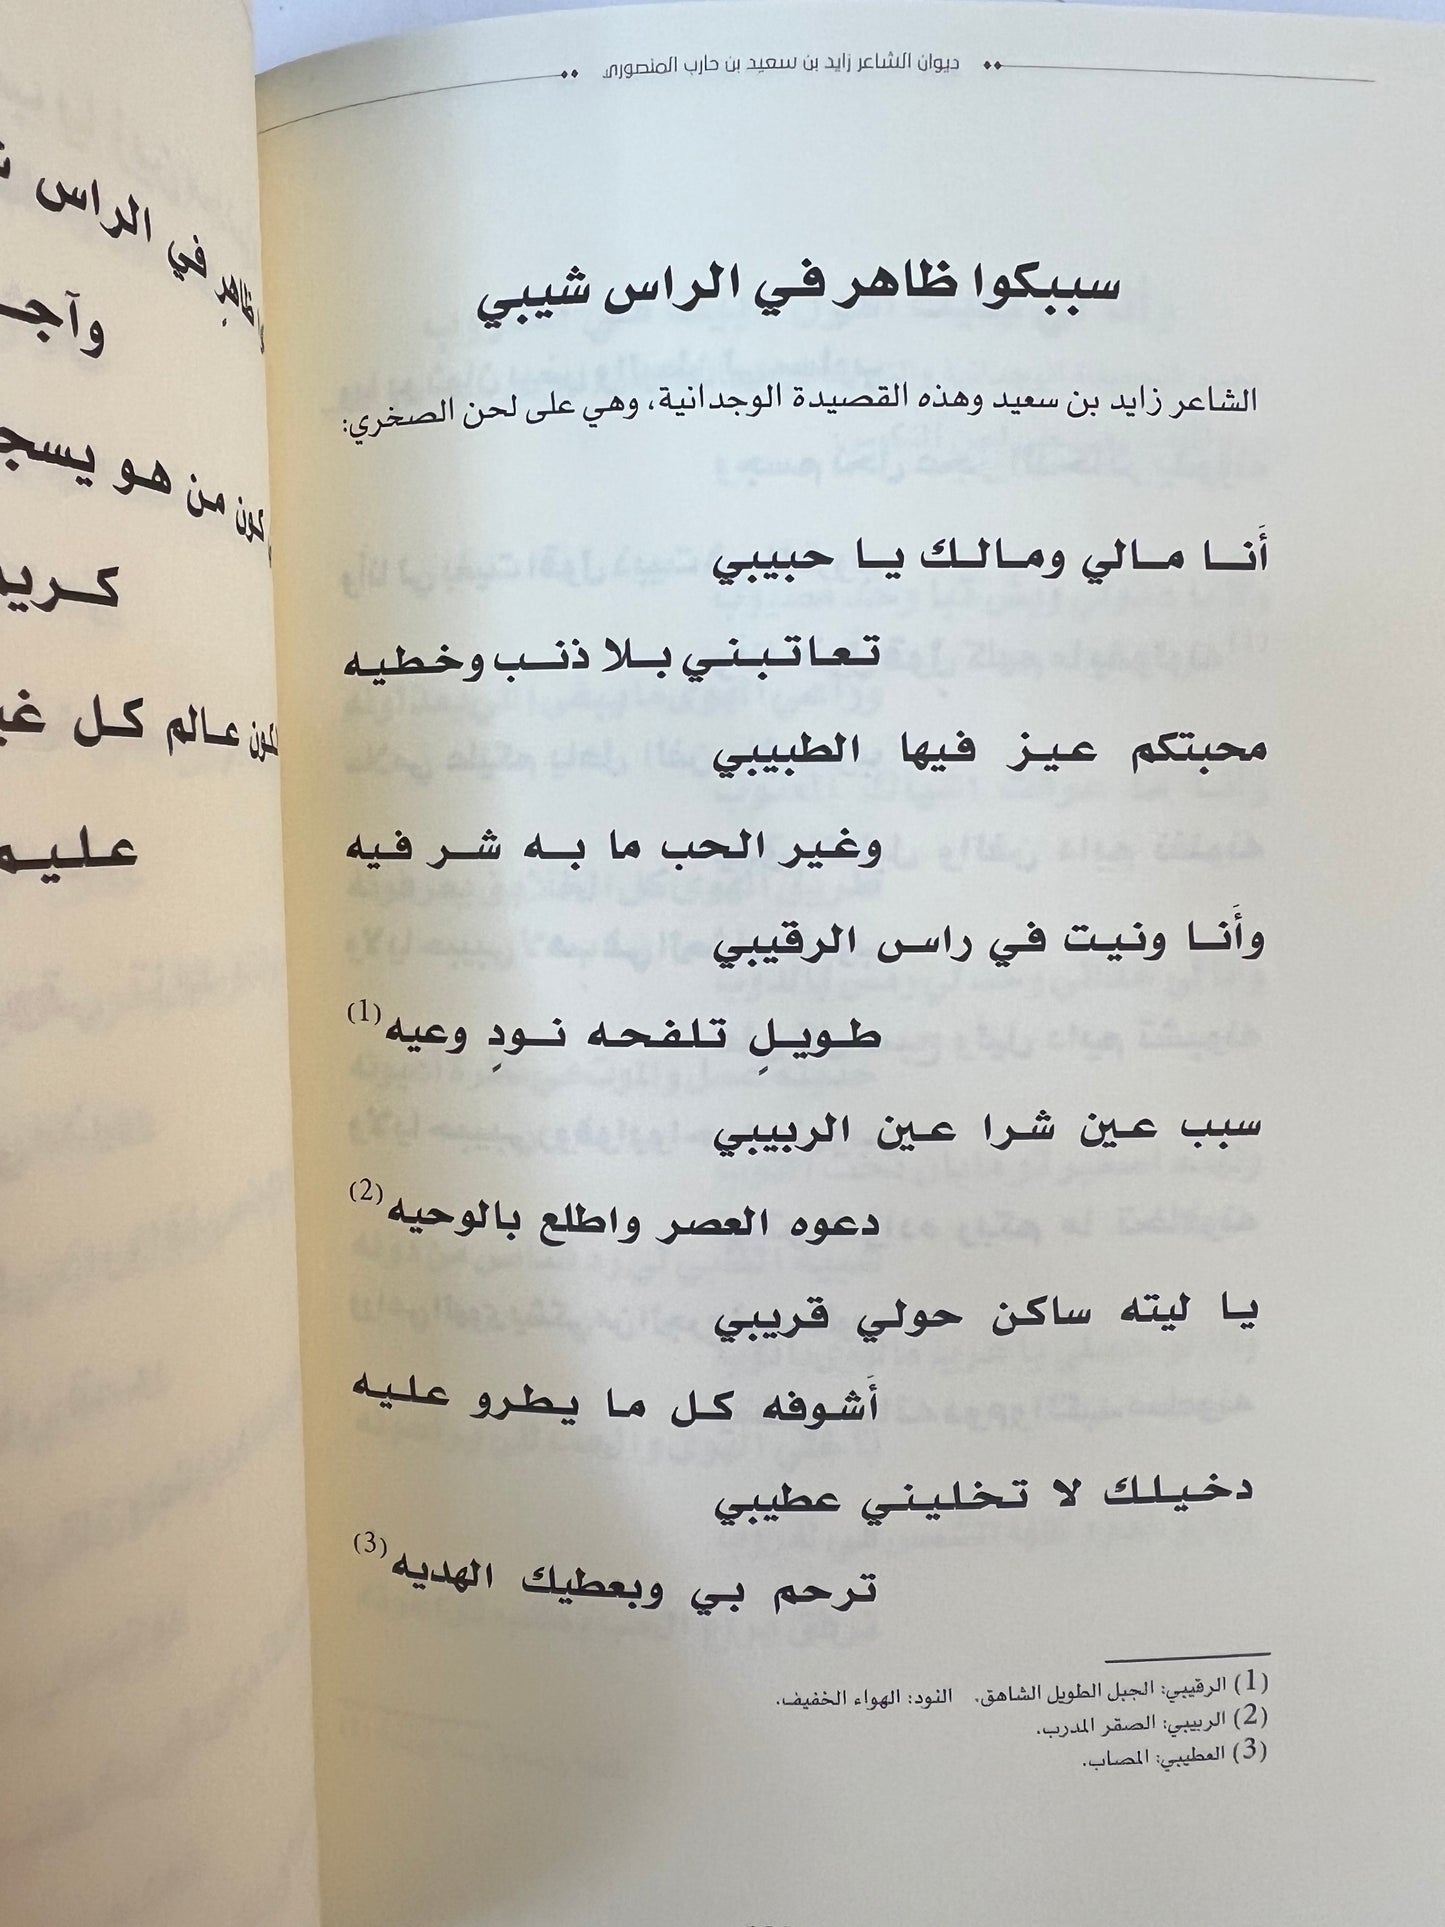 ديوان الشاعر زايد بن سعيد بن حارب المنصوري
سببكوا ظاهر في الراس شيبي
الشاعر زايد بن سعيد وهذه القصيدة الوجدانية، وهي على لحن الصخري:
أَنـا مـالي ومـالـك يـا حبيبي
تـعـاتـبـني بـلا ذنـب وخطيـه
محبتكم عـيـز فيها الطبيبي
وغير الحب ما بـه شـر فيه
وأَنـا ونيـت في راس الرقيبي
طـويـلِ تـلـفحـه نـودِ وعيه(1)
سبب عـين شرا عـين الربيبي
دعوه العصر واطلع بالوحيه(2)
يـا ليته ساكن حولي قريبي
أَشوفه كل ما يطرو عليه
دخيلك لا تخليني عطيبي
ترحم بي وبعطيك الهديه(3)
(1) الرقيبي: الجبل الطويل الشاهق. النود: الهواء الخفيف.
(2) الربيبي: الصقر المدرب.
(3) العطيبي: المصاب.
ظاهرِ في الراس
وآجـ
كون من هو يسجـ
كـريـ
عـالم كـل
عـلـيـم